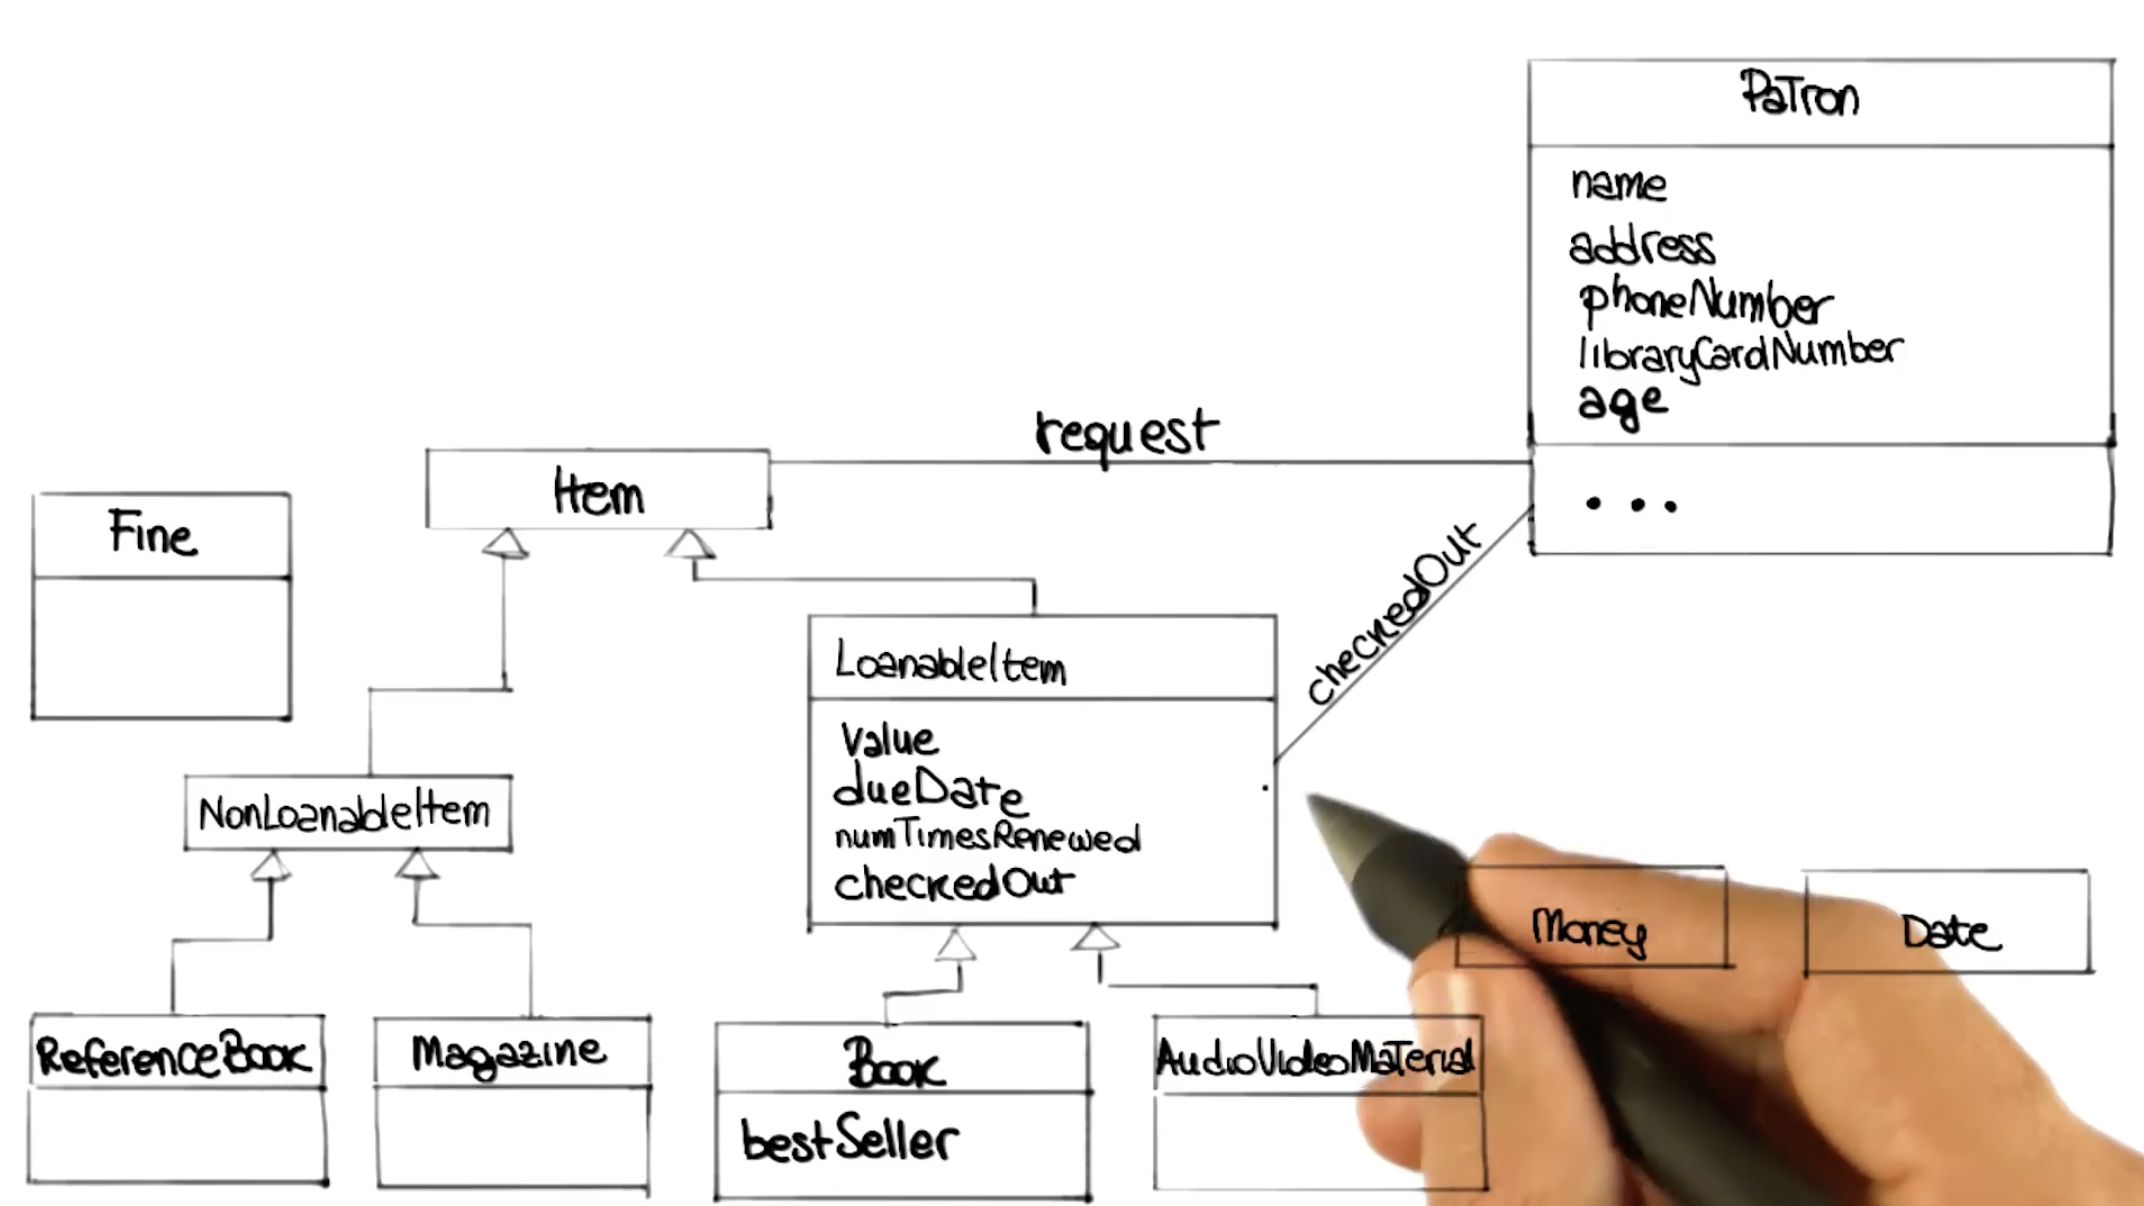 Patron
name
address
phoneNumber
libraryCardNumber
age
...
request
Item
Fine
checkedOut
LoanableItem
Value
dueDate
numTimesRenewed
checkedOut
NonLoanableItem
Money
Date
ReferenceBook
Magazine
Book
bestSeller
AudioVideoMaterial